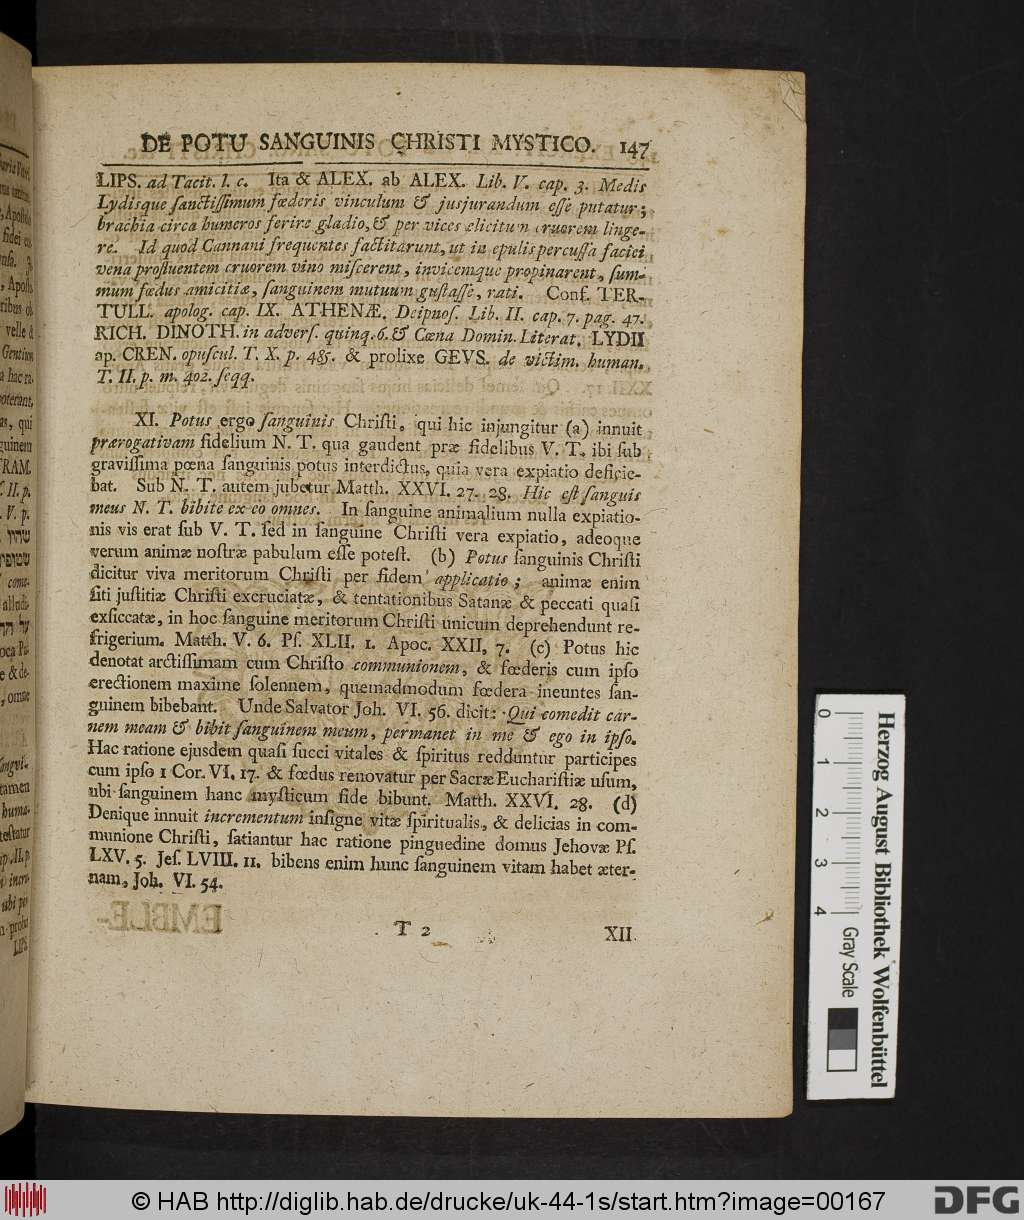 DE POTU SANGUINIS CHRISTI MYSTICO. 147
LIPS. ad Tacit. l. c. Ita & ALEX. ab ALEX. Lib. V. cap. 3. Medis
Lydisque ſanctiſſimum fœderis vinculum & jusjurandum eſſe putatur;
brachia circa humeros ferire gladio, & per vices elicitum cruorem linge-
re. Id quod Cannani frequentes factitarunt, ut in epulis percuſſa faciei
vena profluentem cruorem vino miſcerent, invicemque propinarent, ſum-
mum fœdus amicitiæ, ſanguinem mutuum guſtaſſe, rati. Conf. TER-
TULL. apolog. cap. IX. ATHENÆ. Deipnoſ. Lib. II. cap. 7. pag. 47.
RICH. DINOTH. in adverſ. quinq. 6. & Cœna Domin. Literat. LYDII
ap. CREN. opuſcul. T. X. p. 485. & prolixe GEVS. de victim. human.
T. II. p. m. 402. ſeqq.
XI. Potus ergo ſanguinis Chriſti, qui hic injungitur (a) innuit
prærogativam fidelium N. T. qua gaudent præ fidelibus V. T. ibi ſub
graviſſima pœna ſanguinis potus interdictus, quia vera expiatio deficie-
bat. Sub N. T. autem jubetur Matth. XXVI. 27. 28. Hic eſt ſanguis
meus N. T. bibite ex eo omnes. In ſanguine animalium nulla expiatio-
nis vis erat ſub V. T. ſed in ſanguine Chriſti vera expiatio, adeoque
verum animæ noſtræ pabulum eſſe poteſt. (b) Potus ſanguinis Chriſti
dicitur viva meritorum Chriſti per fidem applicatio; animæ enim
ſiti juſtitiæ Chriſti excruciatæ, & tentationibus Satanæ & peccati quaſi
exſiccatæ, in hoc ſanguine meritorum Chriſti unicum deprehendunt re-
frigerium. Matth. V. 6. Pſ. XLII. 1. Apoc. XXII, 7. (c) Potus hic
denotat arctiſſimam cum Chriſto communionem, & fœderis cum ipſo
erectionem maxime ſolennem, quemadmodum fœdera ineuntes ſan-
guinem bibebant. Unde Salvator Joh. VI. 56. dicit: Qui comedit car-
nem meam & bibit ſanguinem meum, permanet in me & ego in ipſo.
Hac ratione ejusdem quaſi ſucci vitales & ſpiritus redduntur participes
cum ipſo 1 Cor. VI. 17. & fœdus renovatur per Sacræ Euchariſtiæ uſum,
ubi ſanguinem hanc myſticum fide bibunt. Matth. XXVI. 28. (d)
Denique innuit incrementum inſigne vitæ ſpiritualis, & delicias in com-
munione Chriſti, ſatiantur hac ratione pinguedine domus Jehovæ Pſ.
LXV. 5. Jeſ. LVIII. 11. bibens enim hunc ſanguinem vitam habet æter-
nam, Joh. VI. 54.
T 2 XII.
0 1 2 3 4
Gray Scale
Herzog August Bibliothek Wolfenbüttel
© HAB http://diglib.hab.de/drucke/uk-44-1s/start.htm?image=00167
DFG